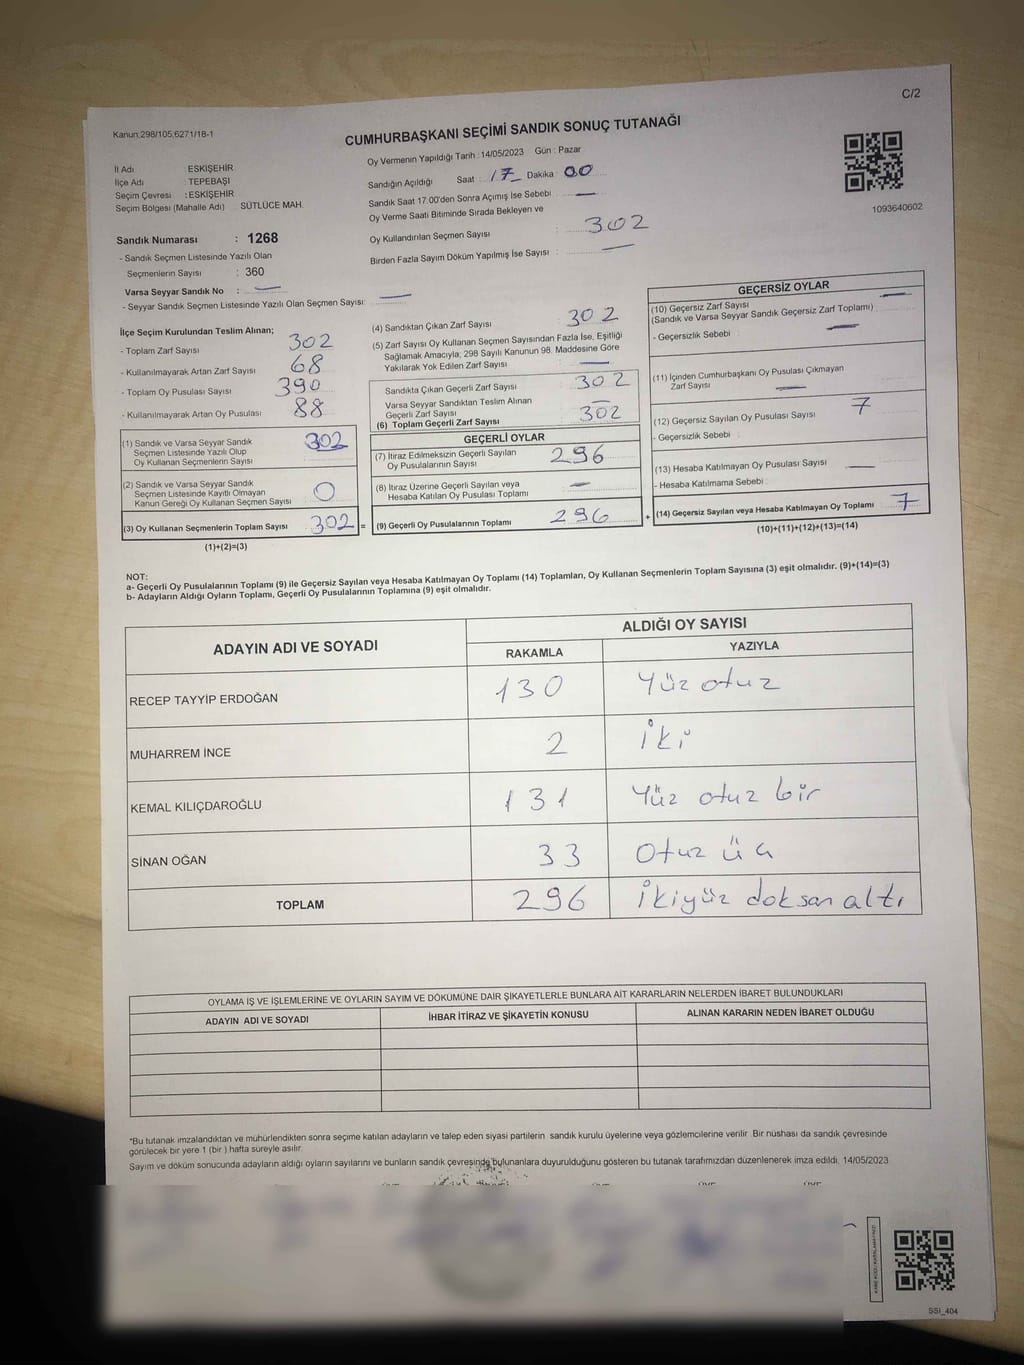 C/2
Kanun;298/105;6271/18-1
CUMHURBAŞKANI SEÇİMİ SANDIK SONUÇ TUTANAĞI
İl Adı ESKİŞEHİR
İlçe Adı : TEPEBAŞI
Seçim Çevresi : ESKİŞEHİR
Seçim Bölgesi (Mahalle Adı) SÜTLÜCE MAH.
Oy Vermenin Yapıldığı Tarih : 14/05/2023 Gün : Pazar
Sandığın Açıldığı Saat : 17 Dakika : 00
Sandık Saat 17:00'den Sonra Açımış İse Sebebi : —
Oy Verme Saati Bitiminde Sırada Bekleyen ve
Oy Kullandırılan Seçmen Sayısı : 302
Birden Fazla Sayım Döküm Yapılmış İse Sayısı : —
1093640602
Sandık Numarası : 1268
- Sandık Seçmen Listesinde Yazılı Olan
Seçmenlerin Sayısı : 360
Varsa Seyyar Sandık No : —
- Seyyar Sandık Seçmen Listesinde Yazılı Olan Seçmen Sayısı: —
İlçe Seçim Kurulundan Teslim Alınan;
- Toplam Zarf Sayısı 302
- Kullanılmayarak Artan Zarf Sayısı 68
- Toplam Oy Pusulası Sayısı 390
- Kullanılmayarak Artan Oy Pusulası 88
(1) Sandık ve Varsa Seyyar Sandık
Seçmen Listesinde Yazılı Olup
Oy Kullanan Seçmenlerin Sayısı 302
(2) Sandık ve Varsa Seyyar Sandık
Seçmen Listesinde Kayıtlı Olmayan
Kanun Gereği Oy Kullanan Seçmen Sayısı 0
(3) Oy Kullanan Seçmenlerin Toplam Sayısı 302 =
(1)+(2)=(3)
(4) Sandıktan Çıkan Zarf Sayısı 302
(5) Zarf Sayısı Oy Kullanan Seçmen Sayısından Fazla İse, Eşitliği
Sağlamak Amacıyla; 298 Sayılı Kanunun 98. Maddesine Göre
Yakılarak Yok Edilen Zarf Sayısı —
Sandıkta Çıkan Geçerli Zarf Sayısı 302
Varsa Seyyar Sandıktan Teslim Alınan
Geçerli Zarf Sayısı —
(6) Toplam Geçerli Zarf Sayısı 302
GEÇERLİ OYLAR
(7) İtiraz Edilmeksizin Geçerli Sayılan
Oy Pusulalarının Sayısı 296
(8) İtiraz Üzerine Geçerli Sayılan veya
Hesaba Katılan Oy Pusulası Toplamı —
(9) Geçerli Oy Pusulalarının Toplamı 296 +
GEÇERSİZ OYLAR
(10) Geçersiz Zarf Sayısı —
(Sandık ve Varsa Seyyar Sandık Geçersiz Zarf Toplamı)
- Geçersizlik Sebebi : —
(11) İçinden Cumhurbaşkanı Oy Pusulası Çıkmayan
Zarf Sayısı —
(12) Geçersiz Sayılan Oy Pusulası Sayısı 7
- Geçersizlik Sebebi :
(13) Hesaba Katılmayan Oy Pusulası Sayısı —
- Hesaba Katılmama Sebebi :
(14) Geçersiz Sayılan veya Hesaba Katılmayan Oy Toplamı 7
(10)+(11)+(12)+(13)=(14)
NOT:
a- Geçerli Oy Pusulalarının Toplamı (9) ile Geçersiz Sayılan veya Hesaba Katılmayan Oy Toplamı (14) Toplamları, Oy Kullanan Seçmenlerin Toplam Sayısına (3) eşit olmalıdır. (9)+(14)=(3)
b- Adayların Aldığı Oyların Toplamı, Geçerli Oy Pusulalarının Toplamına (9) eşit olmalıdır.
ADAYIN ADI VE SOYADI ALDIĞI OY SAYISI
RAKAMLA YAZIYLA
RECEP TAYYİP ERDOĞAN 130 Yüz otuz
MUHARREM İNCE 2 İki
KEMAL KILIÇDAROĞLU 131 Yüz otuz bir
SİNAN OĞAN 33 Otuz üç
TOPLAM 296 İkiyüz doksan altı
OYLAMA İŞ VE İŞLEMLERİNE VE OYLARIN SAYIM VE DÖKÜMÜNE DAİR ŞİKAYETLERLE BUNLARA AİT KARARLARIN NELERDEN İBARET BULUNDUKLARI
ADAYIN ADI VE SOYADI İHBAR İTİRAZ VE ŞİKAYETİN KONUSU ALINAN KARARIN NEDEN İBARET OLDUĞU
*Bu tutanak imzalandıktan ve mühürlendikten sonra seçime katılan adayların ve talep eden siyasi partilerin sandık kurulu üyelerine veya gözlemcilerine verilir. Bir nüshası da sandık çevresinde
görülecek bir yere 1 (bir ) hafta süreyle asılır.
Sayım ve döküm sonucunda adayların aldığı oyların sayılarını ve bunların sandık çevresinde bulunanlara duyurulduğunu gösteren bu tutanak tarafımızdan düzenlenerek imza edildi. 14/05/2023
SSİ_404